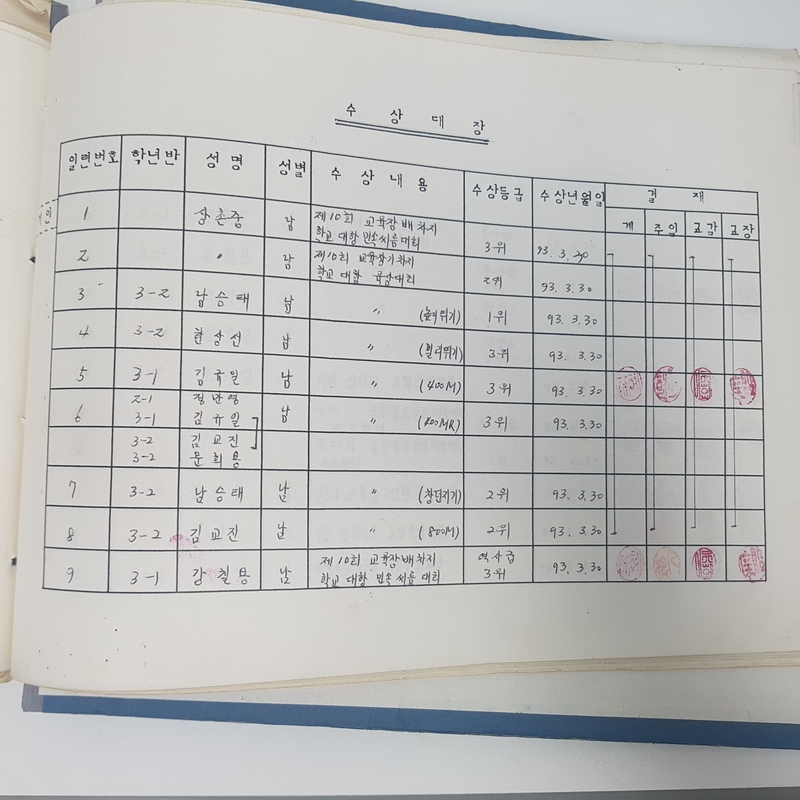 수 상 대 장
일련번호 학년반 성명 성별 수상내용 수상등급 수상년월일 결재
계 주임 교감 교장
1 상촌중 남 제10회 교육장배차지
학교 대항 민속씨름대회 3위 93. 3. 30
2 〃 남 제10회 교육장기차지
학교 대항 육상대회 2위 93. 3. 30
3 3-2 남승태 남 〃 (높이뛰기) 1위 93. 3. 30
4 3-2 한상선 남 〃 (멀리뛰기) 3위 93. 3. 30
5 3-1 김규일 남 〃 (400M) 3위 93. 3. 30
2-1
6 3-1 김규일 남 〃 (400MR) 3위 93. 3. 30
3-2 김교진
3-2 문희용
7 3-2 남승태 남 〃 (창던지기) 2위 93. 3. 30
8 3-2 김교진 남 〃 (800M) 2위 93. 3. 30
9 3-1 강칠봉 남 제10회 교육장배차지 역사급
학교 대항 민속씨름 대회 3위 93. 3. 30